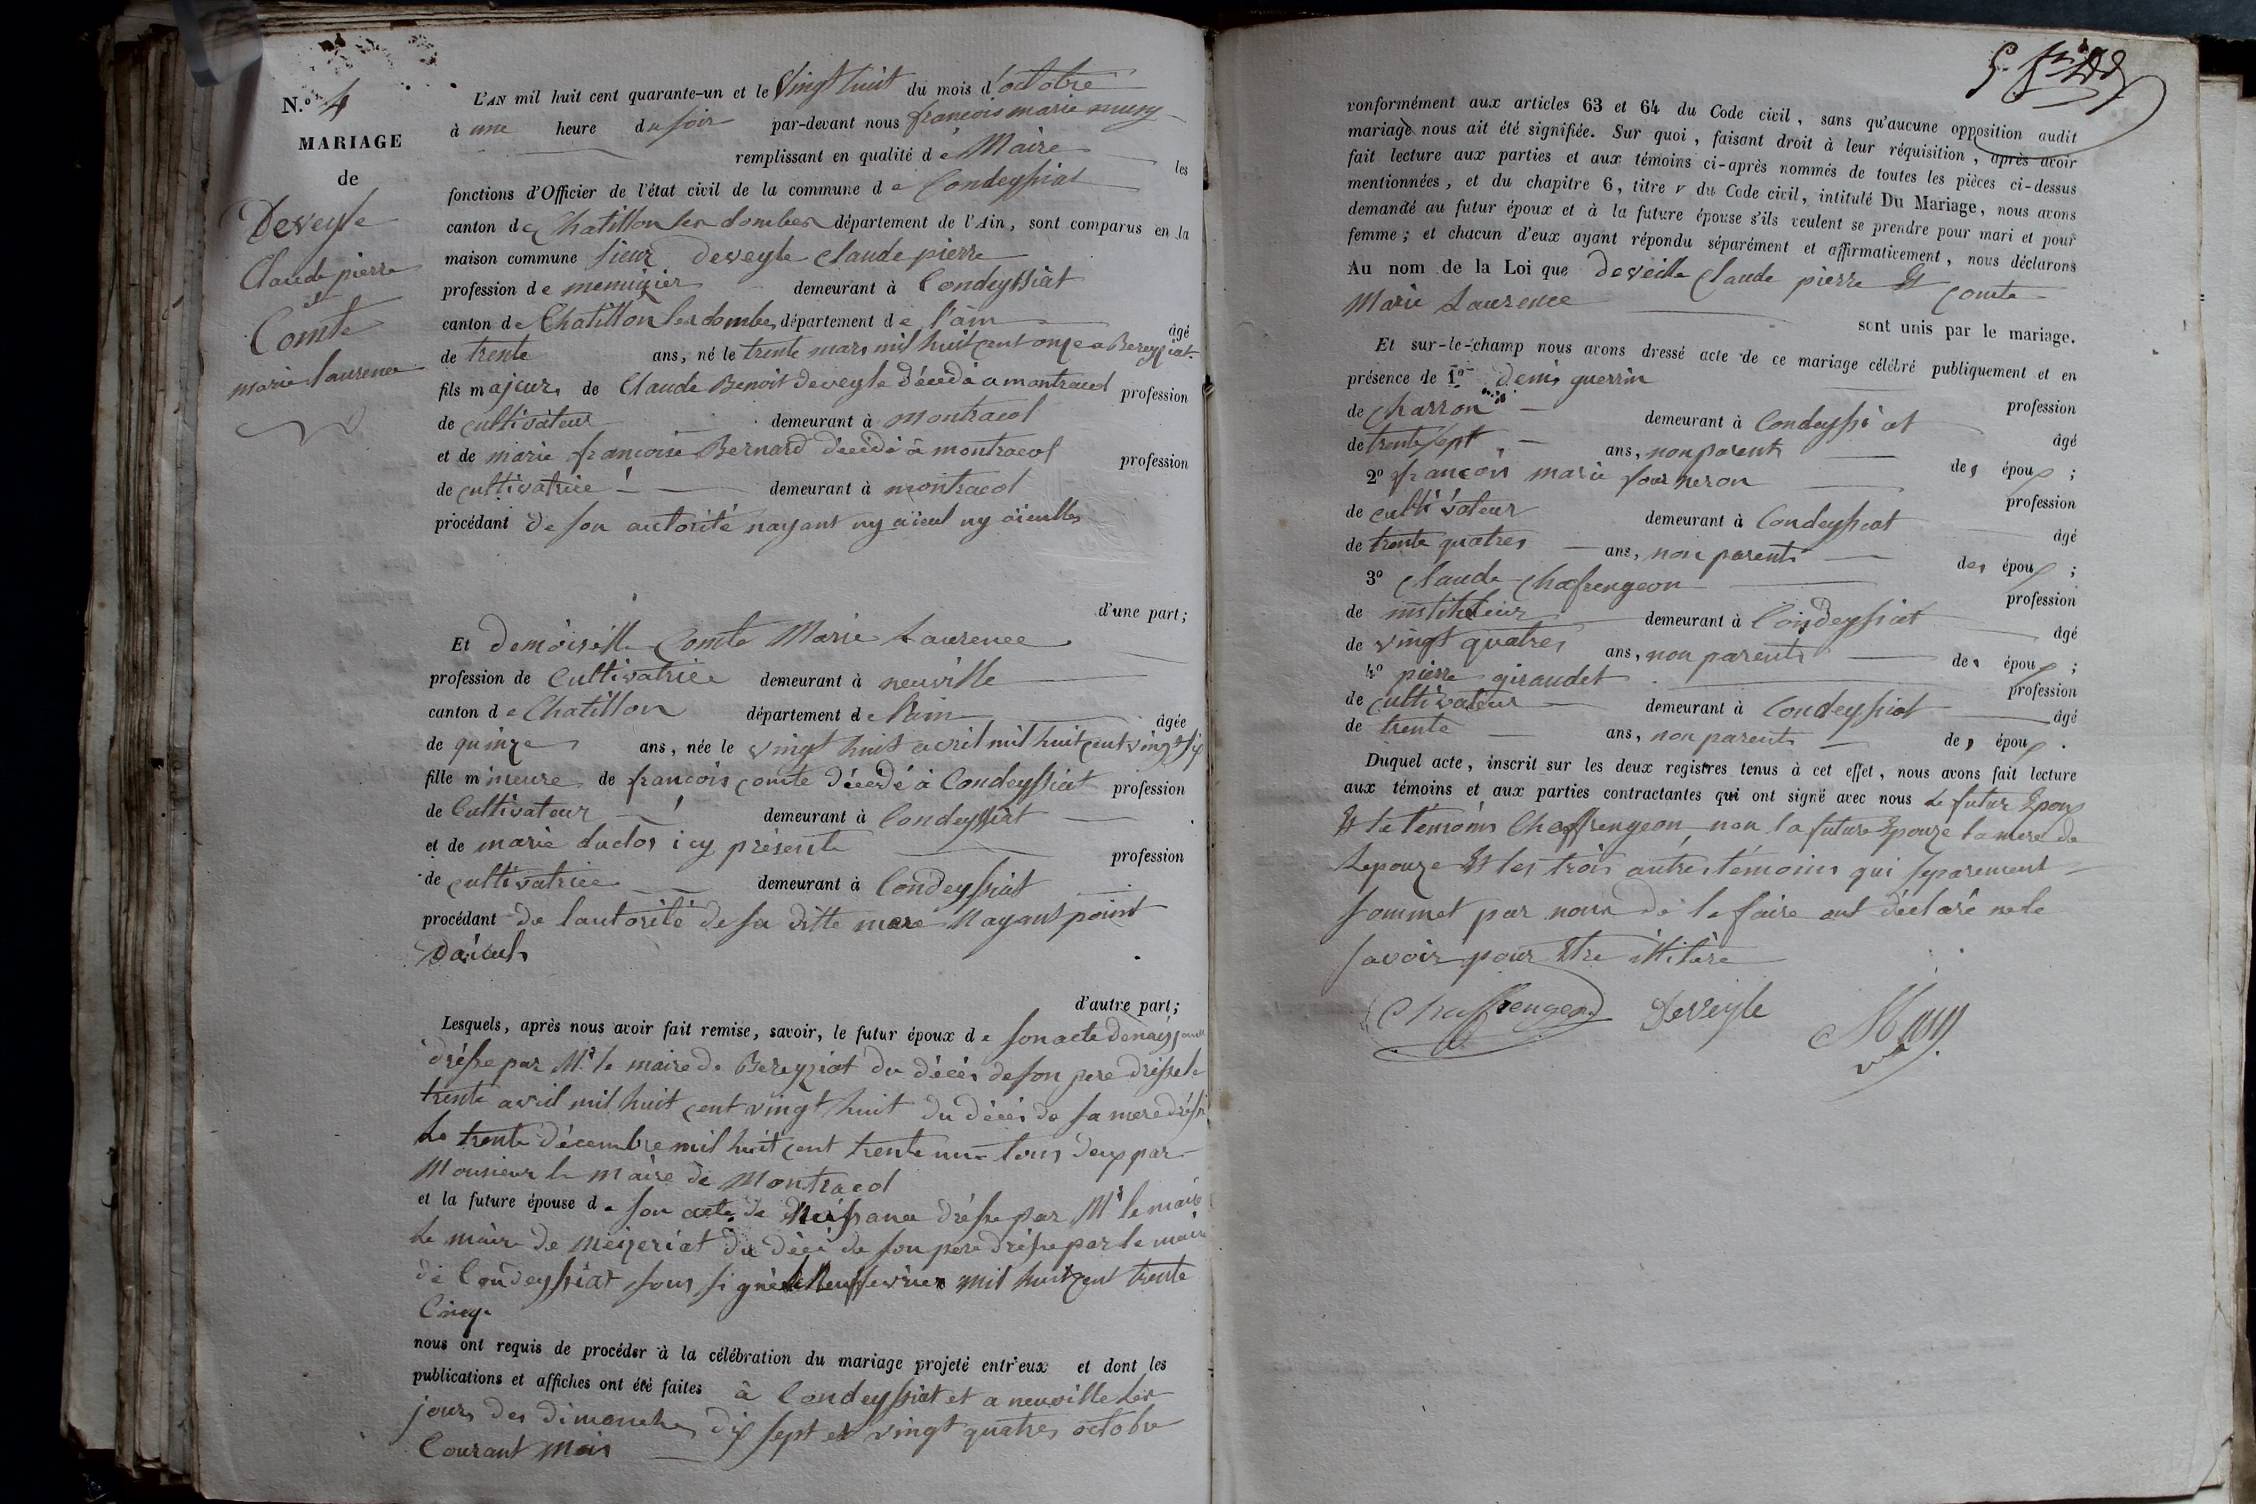 N.º 4
MARIAGE
de
Deveyle
Claude pierre
et
Comte
marie laurence
L'AN mil huit cent quarante-un et le Vingt huit du mois d'octobre
à une heure du soir par-devant nous francois marie mury
remplissant en qualité de Maire les
fonctions d'Officier de l'état civil de la commune de Condeyssiat
canton de Chatillon les dombes département de l'Ain, sont comparus en la
maison commune sieur deveyle claude pierre
profession de menuizier demeurant à Condeyssiat
canton de Chatillon les dombes département de l'ain âgé
de trente ans, né le trente mars mil huit cent onze a Bereyziat
fils majeur de Claude Benoit deveyle décédé a montracol profession
de cultivateur demeurant à montracol
et de marie francoise Bernard décédé à montracol profession
de cultivatrice demeurant à montracol
procédant de son autorité nayant ny aïeul ny aïeulles
d'une part;
Et demoiselle Comte Marie Laurence
profession de Cultivatrice demeurant à neuville
canton de Chatillon département de l'ain âgée
de quinze ans, née le vingt huit avril mil huit cent vingt six
fille mineure de francois comte décédé à Condeyssiat profession
de Cultivateur demeurant à Condeyssiat
et de marie duclos icy présente profession
de cultivatrice demeurant à Condeyssiat
procédant de lautorité de sa ditte mere Nayant point
Daïeuls
d'autre part;
Lesquels, après nous avoir fait remise, savoir, le futur époux de son acte de naissance
dréssé par Mr le maire de Bereyziat du décés de son pere dréssé le
trente avril mil huit cent vingt huit du décés de sa mere dréssé
Le trente décembre mil huit cent trente une tous deux par
Monsieur le maire de Montracol
et la future épouse de son acte de Naissance dréssé par Mr le maire
Le maire de mezeriat du décé de son pere dréssé par le maire
de Condeyssiat sous signé le Neuf fevrier mil huit cent trente
Cinq
nous ont requis de procéder à la célébration du mariage projeté entr'eux et dont les
publications et affiches ont été faites à Condeyssiat et a neuville les
jours des dimanches dix sept et vingt quatres octobre
Courant mois
conformément aux articles 63 et 64 du Code civil, sans qu'aucune opposition audit
mariage nous ait été signifiée. Sur quoi, faisant droit à leur réquisition, après avoir
fait lecture aux parties et aux témoins ci-après nommés de toutes les pièces ci-dessus
mentionnées, et du chapitre 6, titre v du Code civil, intitulé Du Mariage, nous avons
demandé au futur époux et à la future épouse s'ils veulent se prendre pour mari et pour
femme; et chacun d'eux ayant répondu séparément et affirmativement, nous déclarons
Au nom de la Loi que deveille Claude pierre Et comte
Marie Laurence
sont unis par le mariage.
Et sur-le-champ nous avons dressé acte de ce mariage célébré publiquement et en
présence de 1º denis guerrin profession
de charron demeurant à Condeyssiat âgé
de trente sept ans, non parents des époux;
2º francois marie fourneron profession
de cultivateur demeurant à Condeyssiat âgé
de trente quatres ans, non parents des époux;
3º claude chafrengeon profession
de instituteur demeurant à Condeyssiat âgé
de vingt quatres ans, non parents des époux;
4º pierre giraudet profession
de cultivateur demeurant à Condeyssiat âgé
de trente ans, non parents des époux.
Duquel acte, inscrit sur les deux registres tenus à cet effet, nous avons fait lecture
aux témoins et aux parties contractantes qui ont signé avec nous Le futur Epoux
Et le témoins Chaffrengeon, non la future Epouze la mere de
Lepouze Et les trois autres témoins qui separement
sommet par nous de le faire ont déclaré ne le
savoir pour Etre illitére
Chaffrengeon Deveyle Mury